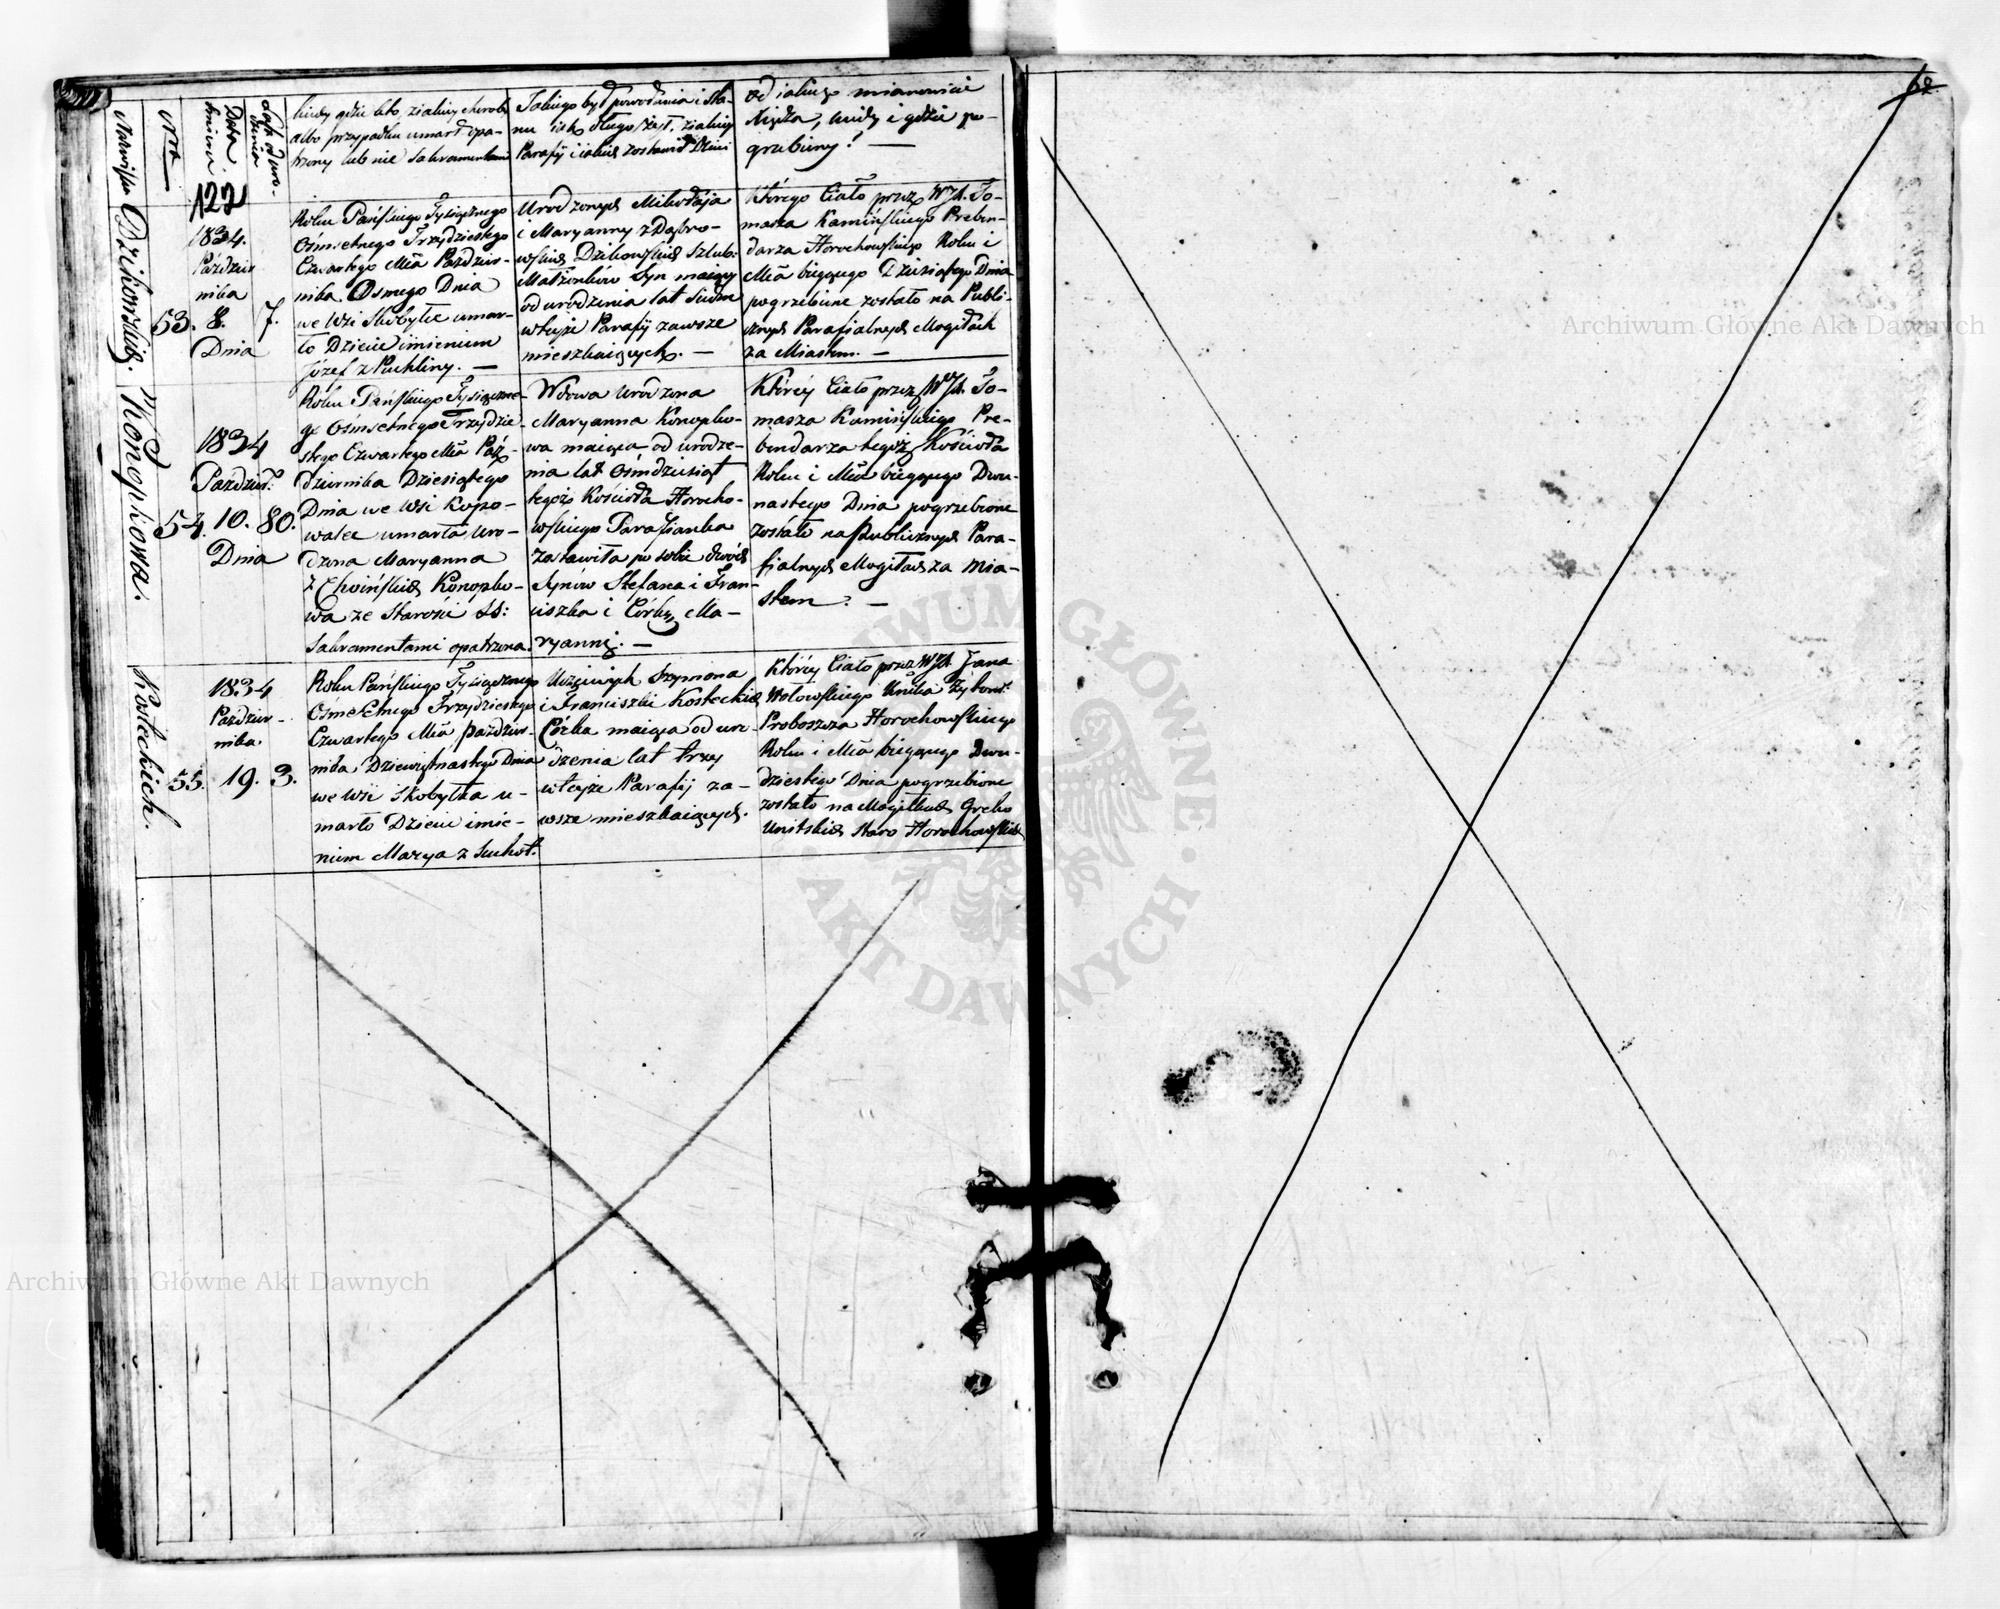 Nazwiska
Nra
Data
śmierci
Lata od uro-
dzenia
kiedy gdzie kto, z iakiey choroby
albo przypadku umarł opa-
trzony lub nie Sakramentami
Jakiego był powołania i Sta-
nu iak długo żył, z iakiey
Parafij i iakie zostawił Dzieci
od iakiego mianowicie
Xiędza, kiedy i gdzie po-
grzebiony? —
122
62
Dzikowskich.
53.
1834.
Paździer
nika
8.
Dnia
7.
Roku Pańskiego Tysiącznego
Osmsetnego Trzydziestego
Czwartego Mca Paździer-
nika Osmego Dnia
we Wsi Skobyłce umar-
ło Dziecie imieniem
Józef z Puchliny. —
Urodzonych Mikołaja
i Maryanny z Dąbro-
wskich Dzikowskich Szlub:
Małżonków Syn maiący
od urodzenia lat Siedm
w teyże Parafij zawsze
mieszkaiących. —
Którego Ciało przez WJX. To-
masza Kamińskiego Preben-
darza Horochowskiego Roku i
Mca bieżącego Dziesiątego Dnia
pogrzebione zostało na Publi-
cznych Parafialnych Mogiłach
za Miastem. —
Konopkowa.
54.
1834
Paździer:
10.
Dnia
80.
Roku Pańskiego Tysiączne-
go Osmsetnego Trzydzie-
stego Czwartego Mca Paź-
dziernika Dziesiątego
Dnia we Wsi
umarła Uro-
dzona Maryanna
z Choińskich Konopko-
wa ze Starości SS:
Sakramentami opatrzona.
Wdowa Urodzona
Maryanna Konopko-
wa maiąca od urodze-
nia lat Ośmdziesiąt
tegoż Kościoła Horocho-
wskiego Parafianka
zostawiła po sobie dwóch
Synów Stefana i Fran-
ciszka i Córkę Ma-
ryannę. —
Którey Ciało przez WJX. To-
masza Kamińskiego Pre-
bendarza tegoż Kościoła
Roku i Mca bieżącego Dwu-
nastego Dnia pogrzebione
zostało na Publicznych Para-
fialnych Mogiłach za Mia-
stem. —
Kosteckich.
55.
1834
Paździer-
nika.
19.
3.
Roku Pańskiego Tysiącznego
Osmsetnego Trzydziestego
Czwartego Mca Paździer-
nika Dziewiętnastego Dnia
we Wsi Skobyłka u-
marło Dziecie imie-
niem Marya z Suchot.
Uczciwych Szymona
i Franciszki Kosteckich
Córka maiąca od uro-
dzenia lat trzy
w teyże Parafij za-
wsze mieszkaiących.
Którey Ciało przez WJX. Jana
Wołowskiego
Proboszcza Horochowskiego
Roku i Mca bieżącego Dwu-
dziestego Dnia pogrzebione
zostało na Mogiłkach Greko
Unitskich Staro Horochowskich
Archiwum Główne Akt Dawnych
ARCHIWUM GŁÓWNE
AKT DAWNYCH
Archiwum Główne Akt Dawnych